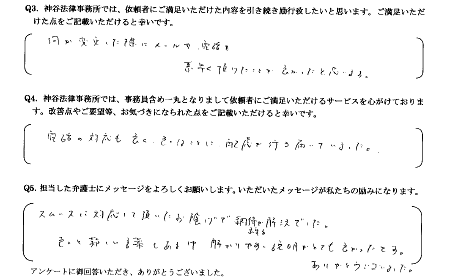 Q3. 神谷法律事務所では、依頼者にご満足いただけた内容を引き続き励行致したいと思います。ご満足いただ
けた点をご記載いただけると幸いです。
何か変更した際にメールや、電話を
素早く頂けたことが良かったと思います。
Q4. 神谷法律事務所では、事務員含め一丸となりまして依頼者にご満足いただけるサービスを心がけておりま
す。改善点やご要望等、お気づきになられた点をご記載いただけると幸いです。
電話の対応も良く、 配慮が行き届いていました。
Q5. 担当した弁護士にメッセージをよろしくお願いします。いただいたメッセージが私たちの励みになります。
スムーズに対応して頂いたお陰げで 解決でした。
説明がとても良かったです。
ありがとうございました。
アンケートに御回答いただき、ありがとうございました。